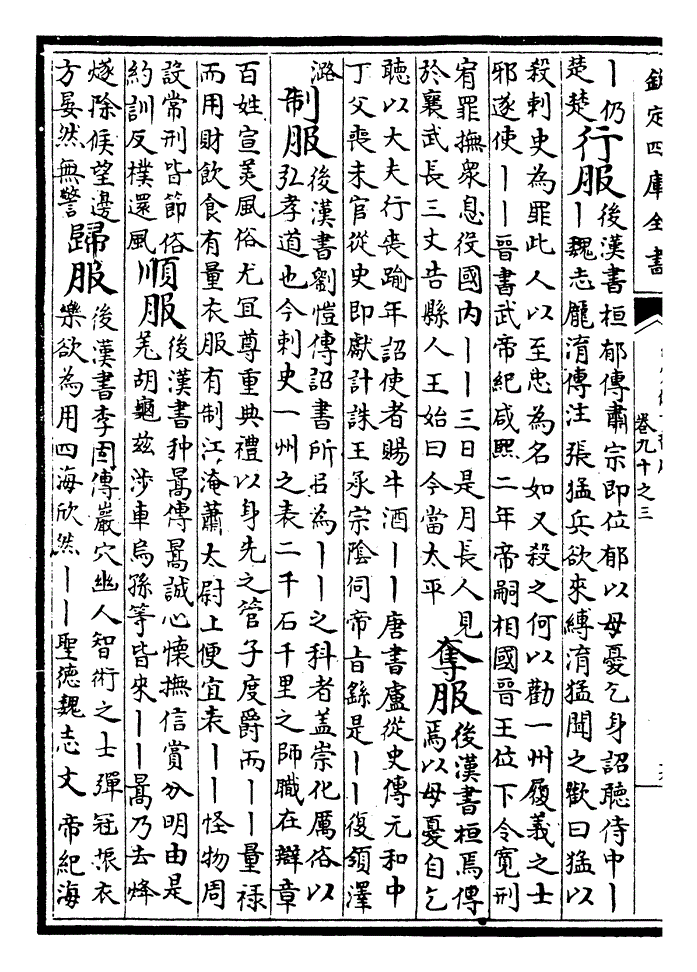 欽定四庫全書
卷九十之三
丨仍
楚楚
行服
後漢書桓郁傳肅宗即位郁以母憂乞身詔聽侍中丨
丨魏志龐淯傳注張猛兵欲來縛淯猛聞之歎曰猛以
殺刺史為罪此人以至忠為名如又殺之何以勸一州履義之士
邪遂使丨丨晉書武帝紀咸熙二年帝嗣相國晉王位下令寬刑
宥罪撫衆息役國内丨丨三日是月長人見
於襄武長三丈告縣人王始曰今當太平
奪服
後漢書桓焉傳
焉以母憂自乞
聽以大夫行喪踰年詔使者賜牛酒丨丨唐書盧從史傳元和中
丁父喪未官從史即獻計誅王承宗陰伺帝旨繇是丨丨復領澤
潞
制服
後漢書劉愷傳詔書所以為丨丨之科者蓋崇化厲俗以
弘孝道也今刺史一州之表二千石千里之師職在辯章
百姓宣美風俗尤宜尊重典禮以身先之管子度爵而丨丨量祿
而用財飲食有量衣服有制江淹蕭太尉上便宜表丨丨怪物周
設常刑皆節俗
約訓反樸還風
順服
後漢書种暠傳暠誠心懷撫信賞分明由是
羌胡龜兹涉車烏孫等皆來丨丨暠乃去烽
燧除候望邊
方晏然無警
歸服
後漢書李固傳巖穴幽人智術之士彈冠振衣
樂欲為用四海欣然丨丨聖德魏志文帝紀海